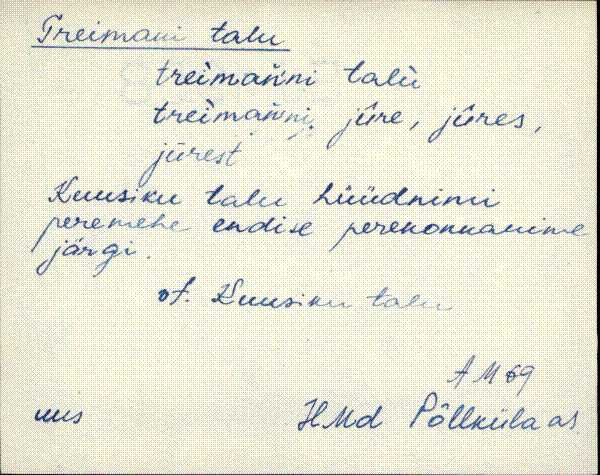 Treimani talu
trèimańni talù
trèimańni, jǖre, jǖres,
jǖrest
Kuusiku talu hüüdnimi
peremehe endise perekonnanime
järgi.
vt. Kuusiku talu
AM 69
uus
HMd Põllküla as.